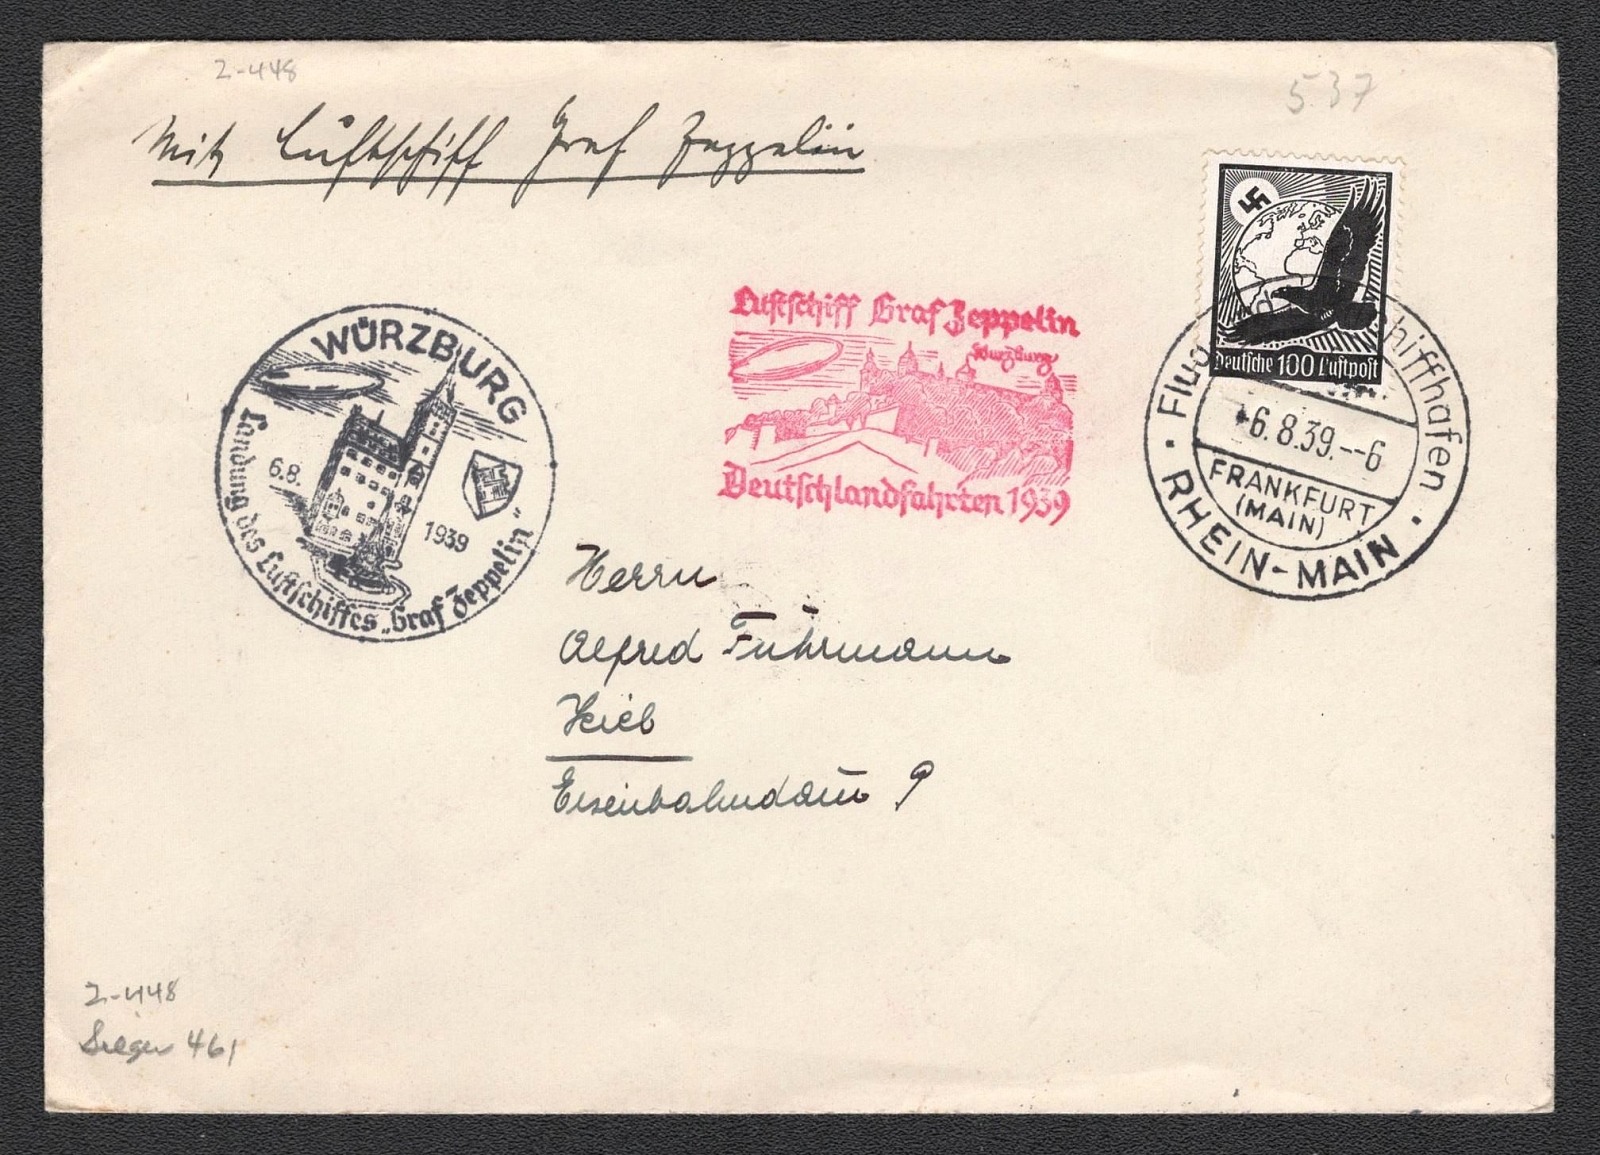 Z-448
537
Mit Luftschiff Graf Zeppelin
Deutsche 100 Luftpost
Luftschiff Graf Zeppelin
Würzburg
Deutschlandfahrten 1939
WÜRZBURG
6.8.
1939
Landung des Luftschiffes „Graf Zeppelin"
Flug- schiffhafen
6.8.39.--6
FRANKFURT
(MAIN)
RHEIN-MAIN
Herrn
Alfred Fuhrmann
Kiel
Eisenbahndamm 9
Z-448
Sieger 461